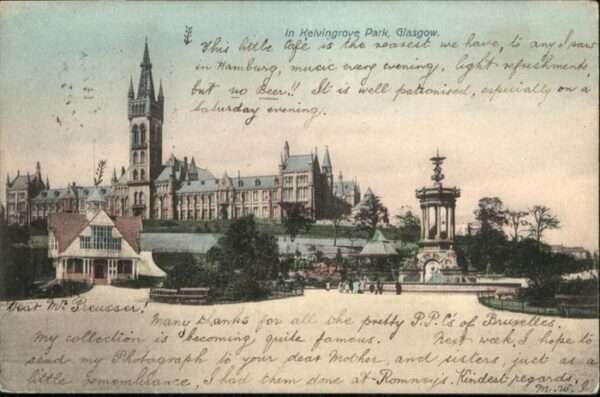 In Kelvingrove Park, Glasgow.
This little Café is the nearest we have, to any I saw
in Hamburg, music every evening, light refreshments,
but no Beer!! It is well patronised, especially on a
Saturday evening.
Dear Mr. Preusser!
Many thanks for all the pretty P.P.C's of Bruxelles.
My collection is becoming quite famous. Next week, I hope to
send my Photograph to your dear Mother, and sisters, just as a
little remembrance, I had them done at Romneys. Kindest regards,
M.W.